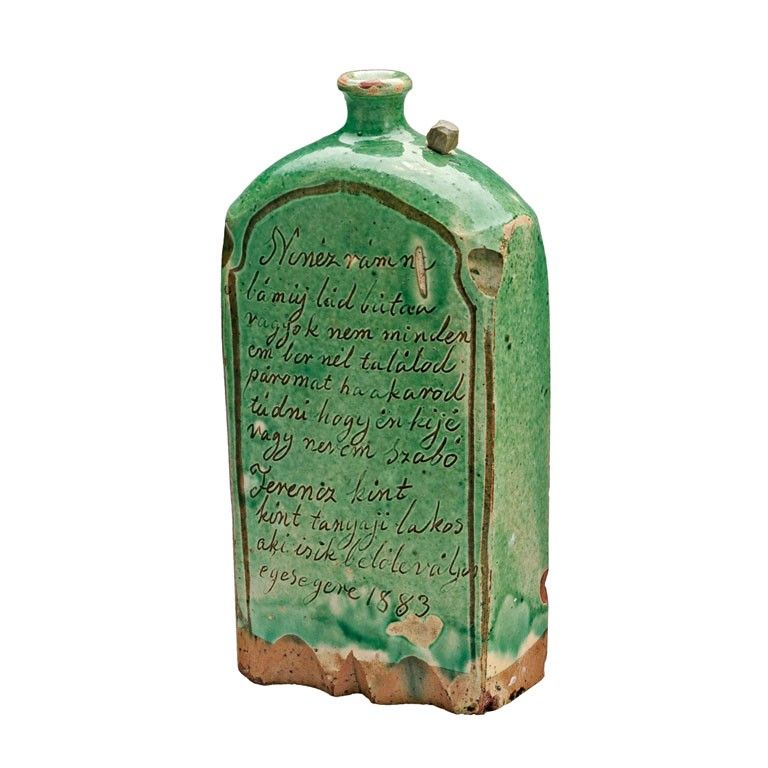 Ne néz rám ne
bámúj lád bútaa
vagyok nem minden
em ber nél találod
páromat ha akarod
túdni hogy én kijé
vagy nevem szabó
Ferencz kint
kint tanyaji lakos
aki iszik belőle váljon
egesegere 1883